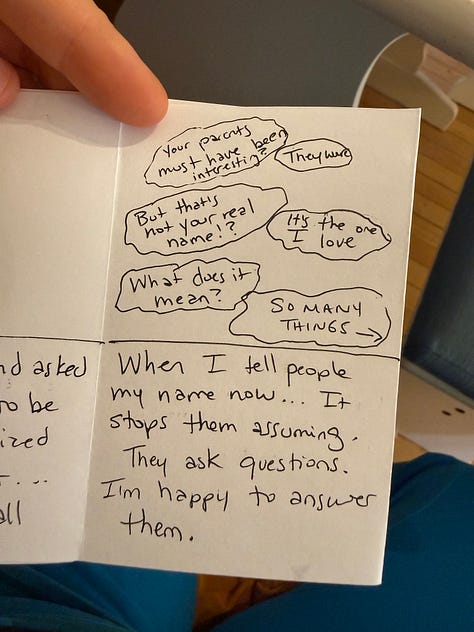 Your parents
must have been
interesting?
They were
But that's
not your real
name!?
It's the one
I love
What does it
mean?
SO MANY
THINGS →
nd asked
to be
ized
all
When I tell people
my name now... It
stops them assuming.
They ask questions.
I'm happy to answer
them.